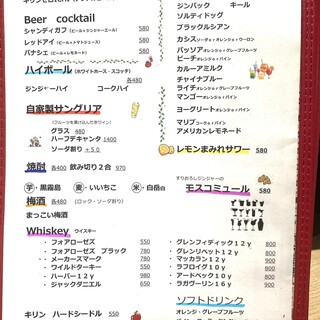 Beer cocktail 580
シャンディガフ（ビール+ジンジャーエール）
レッドアイ（ビール+トマトジュース）
パナシェ（ビール+レモネード） 580
ハイボール（ホワイトホース・スコッチ）
各480
ジンジャーハイ コークハイ
自家製サングリア
（フルーツを漬け込んだホワイン）
グラス 480
ハーフデキャンタ 1400
ソーダ割り +５０
焼酎 各400 飲み切り２合 970
芋・黒霧島 麦・いいちこ 米・白岳
梅酒 各480（ロック・ソーダ割り）
まっこい梅酒
Whiskey ウイスキー
・フォアローゼズ 550
・フォアローゼズ ブラック 780
・メーカーズマーク 780
・ワイルドターキー 550
・ハーパー１２ｙ 980
・ジャックダニエル 650
キリン ハードシードル 550
ジンバック キール
ソルティドッグ
ブラックルシアン
カシスソーダｏｒオレンジｏｒウーロン
パッソアオレンジｏｒグレープフルーツ
ピーチオレンジｏｒパイン
カルーアミルク
チャイナブルー
ライチオレンジｏｒグレープフルーツ
マンゴーオレンジｏｒパイン
ヨーグリートオレンジｏｒパイン
マリブコークｏｒパイン
アメリカンレモネード
レモンまみれサワー 580
すりおろしジンジャーの
モスコミュール 580
・グレンフィディック１２ｙ 800
・グレンリベット１２ｙ 800
・マッカラン１２ｙ 900
・ラフロイグ１０ｙ 800
・アードベック１０ｙ 800
・ラガヴーリン１６ｙ 900
ソフトドリンク
オレンジ・グレープフルーツ